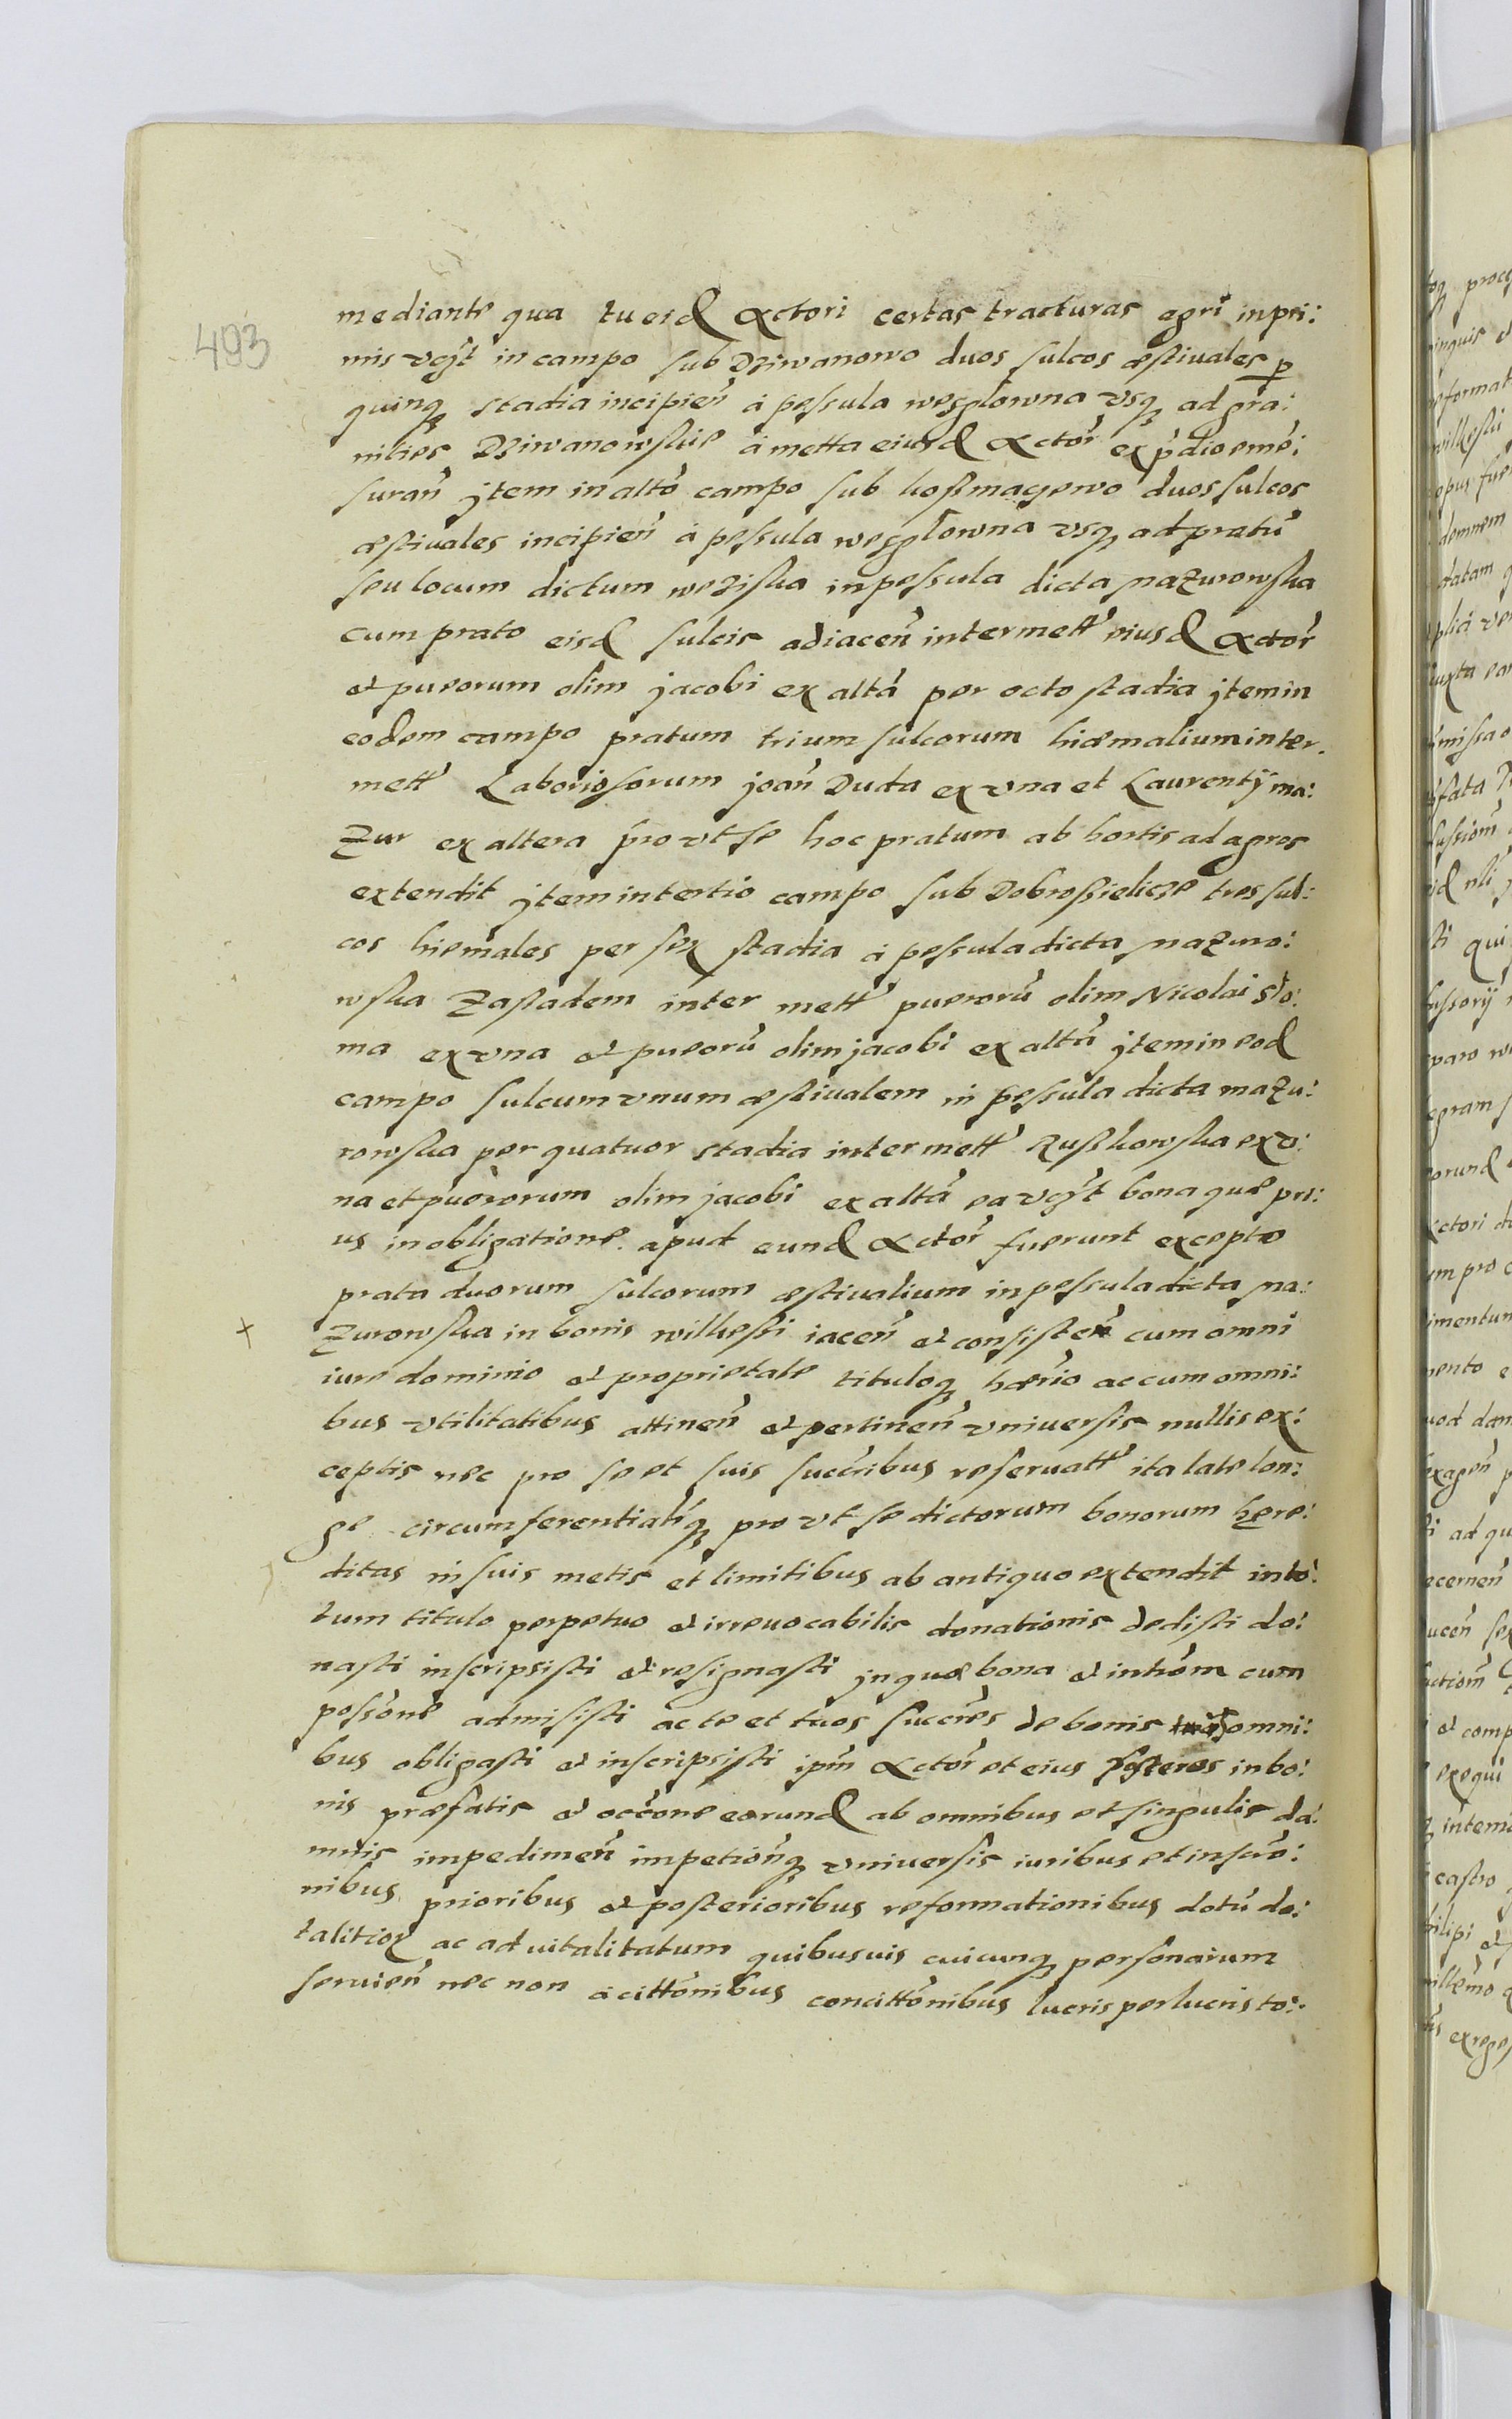 493
mediante qua tu eid Actori certas tracturas agri inpri:
mis vcȳt in campo sub Dziwanowo duos sulcos æstiuales p
quinq stadia incipien̄ á pessula weszglowna vsq ad gra:
nities Dziwanowskie á metta eiusd Actor̄ ex p̄dio eme:
suran̄ jtem in alto campo sub kosmaczewo duos sulcos
æstiuales incipien̄ á pessula weszglowna vsq ad pratū
seu locum dictum weziska in pessula dicta nazurowska
cum prato eisd sulcis adiacen̄ inter mett eiusd Actor̄
et puerorum olim jacobi ex altá per octo stadia jtem in
eodem campo pratum trium sulcorum hiæmalium inter
mett Laboriosorum joan̄ Duda ex vna et Laurentij ma:
zur ex altera pro vt se hoc pratum ab hortis ad agros
extendit jtem in tertio campo sub Dobrossielicze tres sul:
cos hiemales per sex stadia á pessula dicta nazuro:
wska zastadem inter mett puerorū olim Nicolai Sło:
ma ex vna et puerorū olim jacobi ex altá jtem in eod
campo sulcum vnum æstiualem in pessula dicta mazu:
rowska per quatuor stadia inter mett Ruszkowska ex v:
na et puerorum olim jacobi ex altá ea vcȳt bona quæ pri:
us in obligatione apud eund Actor̄ fuerunt excepto
prata duorum sulcorum æstiualium in pessula dicta na:
x zurowska in bonis wilkessi iacen̄ et consisten̄ cum omni
iure dominio et proprietate tituloq hærio ac cum omni:
bus vtilitatibus attinen̄ et pertinen̄ vniuersis nullis ex:
ceptis nec pro se et suis succribus reseruatt ita late lon:
ge circumferentialiq pro vt se dictorum bonorum hære:
ditas in suis metis et limitibus ab antiquo extendit in to:
tum titulo perpetuo et irreuocabilis donationis dedisti do:
nasti inscripsisti et resignasti jn quæ bona et introm cum
possone admisisti ac te et tuos succres de bonis omni:
bus obligasti et inscripsisti ipm Actor̄ et eius posteros in bo:
nis præfatis et occone earund ab omnibus et singulis da:
mnis impedimen̄ impetionq vniuersis iuribus et inscro:
nibus prioribus et posterioribus reformationibus dotū do:
talitior ac aduitalitatum quibusuis cuicunq personarum
seruien̄ nec non á cittonibus concittonibus lucris perlucris to: